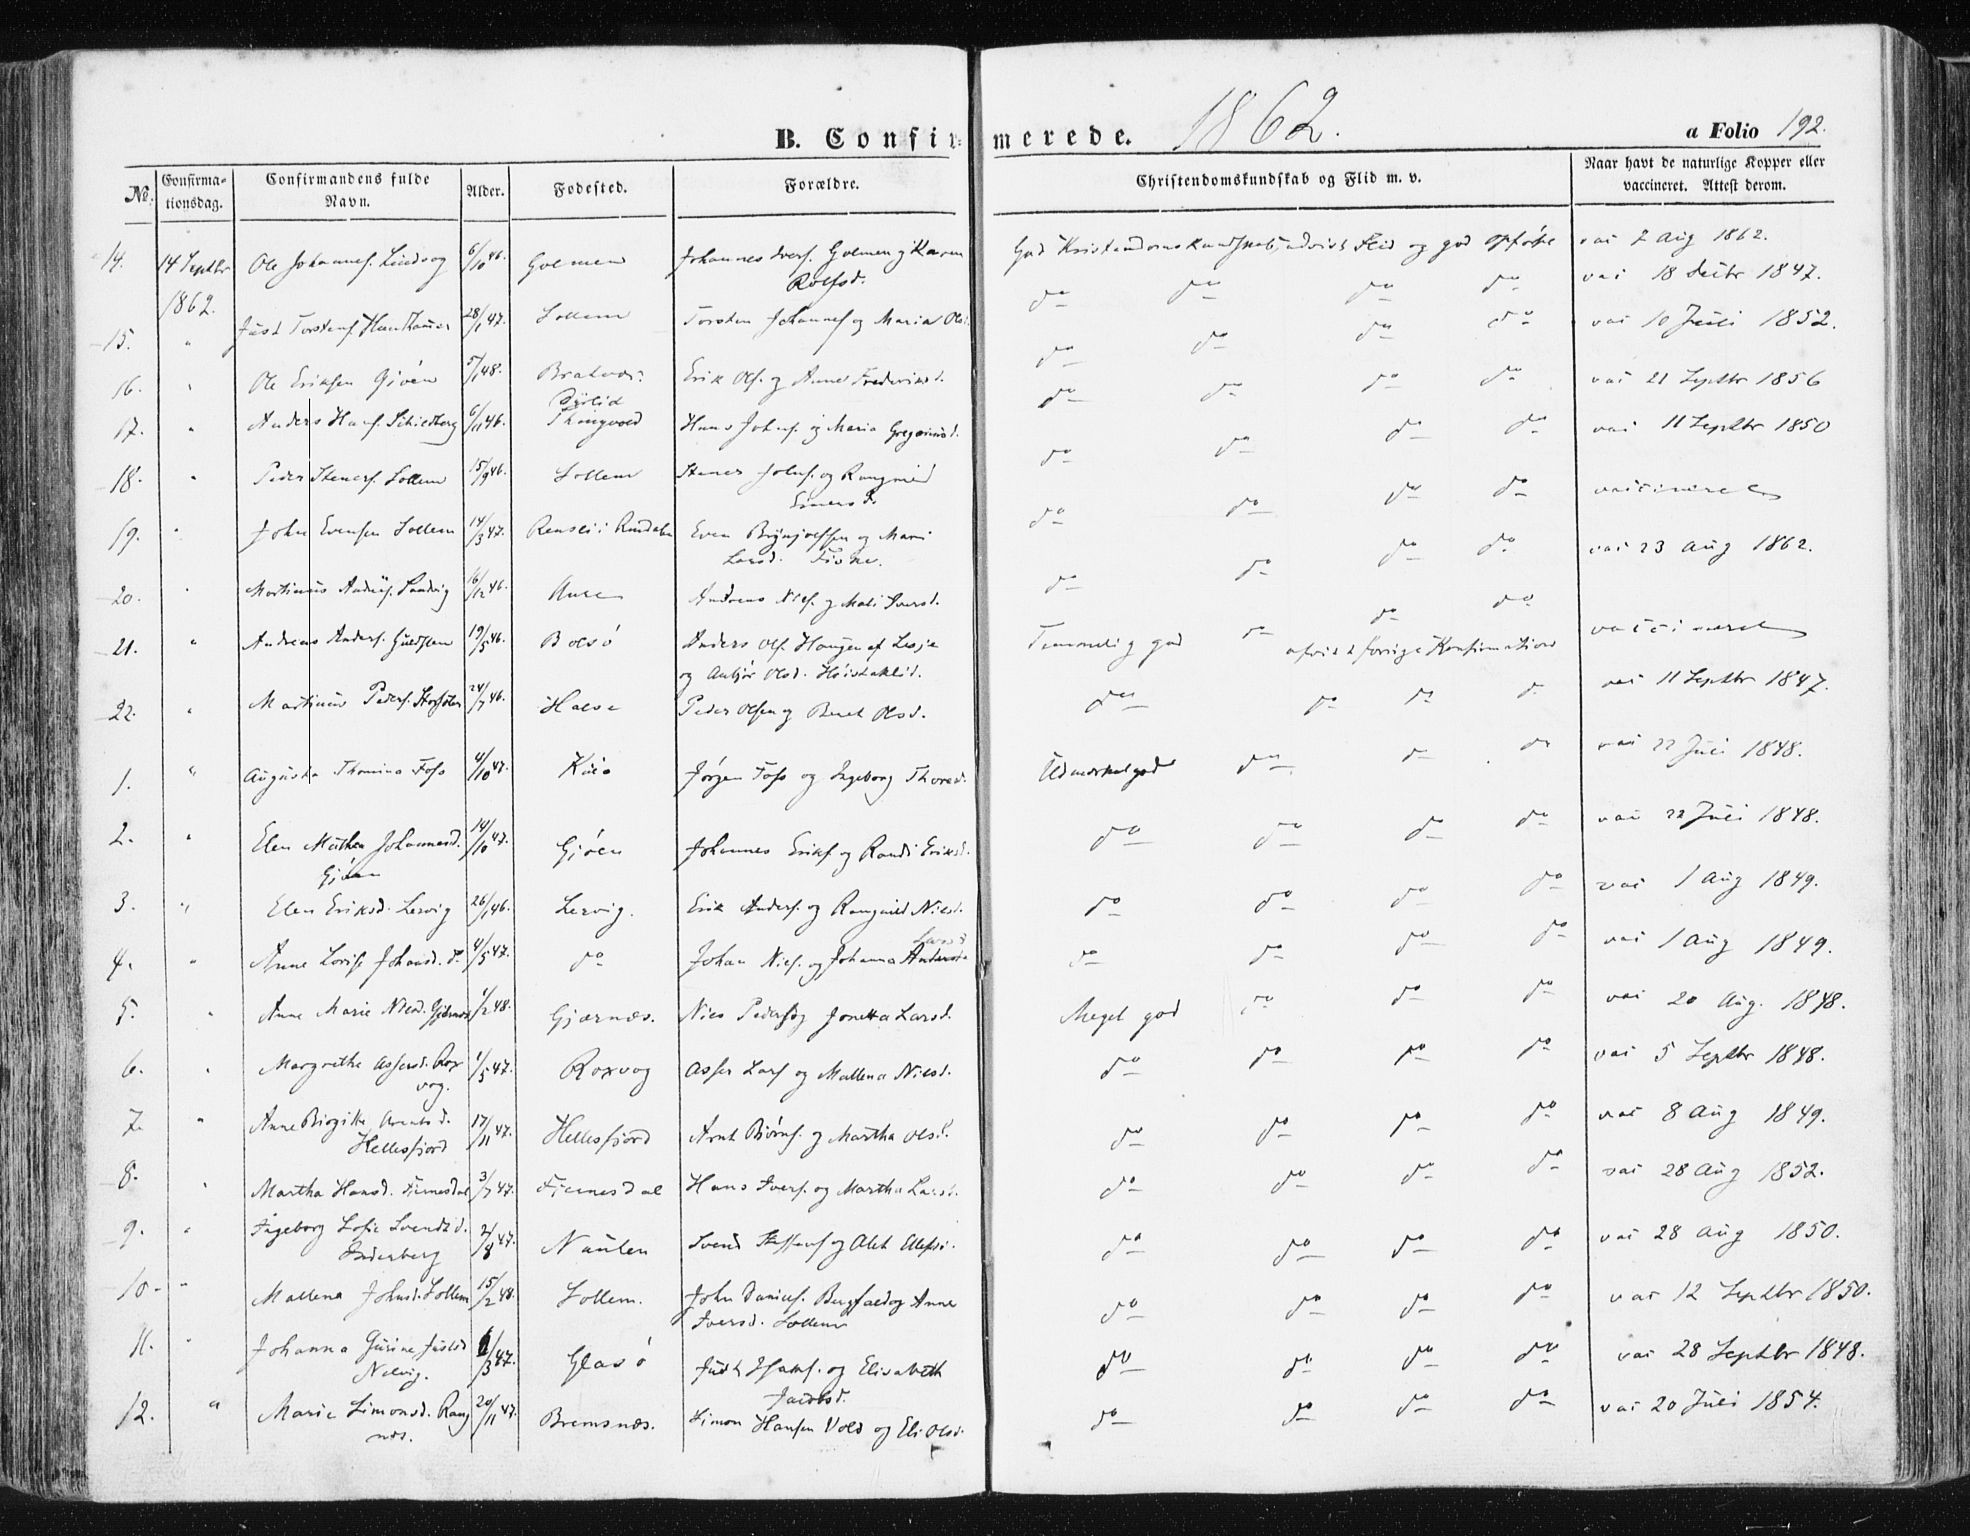 B. Confirmerede. 1862. a Folio 192.
№ Confirmationsdag. Confirmandens fulde Navn. Alder. Fødested. Forældre. Christendomskundskab og Flid m. v. Naar havt de naturlige Kopper eller vaccineret. Attest derom.
14. 14 Septbr 1862. Ole Johannes. 6/10 46. Golmen Johannes Iversf. Golmen og Karen Rolfsd. God Kristendomskundskab, udvist Flid og god Opførse vac 7 Aug 1862.
15. " Just Torstens. 28/1 47. Sollem Torsten Johannesf og Maria Ols. do do do do vac 18 Decbr 1847.
16. " Ole Eriksen Gjøen 5/1 48. Bratvær. Erik Olsf. og Anne Frederiksd. do do do do vac 10 Juli 1852.
17. " Anders Hansf. Schiedberg 6/11 46. Thingvold Hans Johnsf. og Maria Gregoriusd. do do do do vac 21 Septbr 1856
18. " Peder Stenersf. Sollem 15/9 46. Sollem Stener Johnsf. og Rangnild Einersd. do do do do vac 11 Septbr 1850
19. " John Evensen Sollem 14/3 47. i Rindalen Even Brynjolfsen og Mari Larsd. Fiske. do do do do vaccineret
20. " Martinus Andersf. Sandvig 16/12 46. Aure Andreas Nilsf. og Mali Iversd. do do do do vac 23 Aug 1862.
21. " Andreas Andersf. 19/5 46. Bolsø Anders Olsf. Haugen af Lesje og Olsd. Temmelig god do do do afvist forrige Konfirmation vaccineret
22. " Martinus Pedersf. 24/7 46. Halse Peder Olsen og Beret Olsd. do do do do vac 11 Septbr 1847.
1. " Augusta Thomina Foss 4/10 47. Jørgen Foss og Ingeborg Thoresd. Udmærket god do do do vac 22 Juli 1848.
2. " Elen Mathea Johannesd. Gjøen 14/10 47. Gjøen Johannes Eriksf og Randi Eriksd. do do do do vac 22 Juli 1848.
3. " Elen Eriksd. Lervig 26/1 46. Lervig. Erik Andersf. og Rangnild Nilsd. do do do do vac 1 Aug 1849.
4. " Anne Lovise Johansd. do 4/5 47. do Johan Nilsf. og Johanna do do do do vac 1 Aug 1849.
5. " Anne Marie Nilsd. Gjærnæs 1/2 48. Gjærnæs. Nils Pedersf og Jonetta Larsd. Meget god do do do vac 20 Aug. 1848.
6. " Margrethe Assersd. Roxvog. 1/5 47. Roxvog Asser Larsf og Mallena Nilsd. do do do do vac 5 Septbr 1848.
7. " Anne Birgitte Arentsd. Hellesfjord 17/11 47. Hellesfjord Arnt Bjørnsf. og Martha Olsd. do do do do vac 8 Aug 1849.
8. " Martha Hansd. Fiernesdal 3/7 47. Fiernesdal Hans Iversf. og Martha Larsd. do do do do vac 28 Aug 1852.
9. " Ingeborg Sofie Svendsd. Inderberg 2/8 47. Svend Steffensf og Alet Ellefsd. do do do do vac 28 Aug 1850.
10. " Mallena Johnsd. Sollem 15/2 48. Sollem. John Danielsf. og Anne Iversd. Sollem do do do do vac 12 Septbr 1850.
11. " Johanna Gurine Justsd Nelvig. 6/3 47. Glasø Just Isaksf. og Elisabeth Jacobsd. do do do do vac 28 Septbr 1848.
12. " Marie Simonsd. Rangnæs. 20/11 47. Bremsnæs. Simon Hansen Vold og Eli Olsd. do do do do vac 20 Juli 1854.